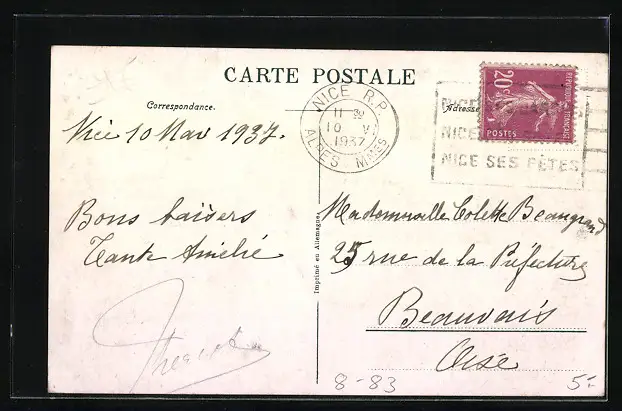 CARTE POSTALE
Correspondance.
Adresse
NICE R.P.
11 30
10 V
1937
ALPES MMES
20c
REPUBLIQUE FRANÇAISE
POSTES
NICE
NICE
NICE SES FÊTES
Nice 10 Mai 1937.
Bons baisers
Tante Amélie
Imprimé en Allemagne
Mademoiselle Colette Beaugrand
25 rue de la Préfecture
Beauvais
Oise
8-83
5.-